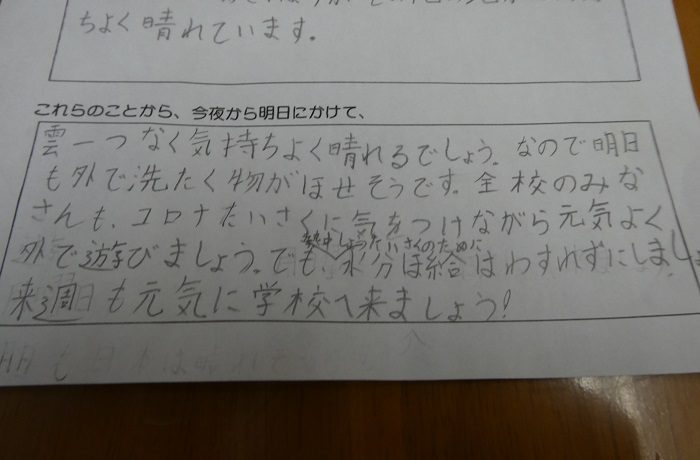 ちよく晴れています。
これらのことから、今夜から明日にかけて、
雲一つなく気持ちよく晴れるでしょう。なので明日
も外で洗たく物がほせそうです。全校のみな
さんも、コロナたいさくに気をつけながら元気よく
熱中しょうたいさくのために
外で遊びましょう。でも、水分ほ給はわすれずにしましょ
来週も元気に学校へ来ましょう!